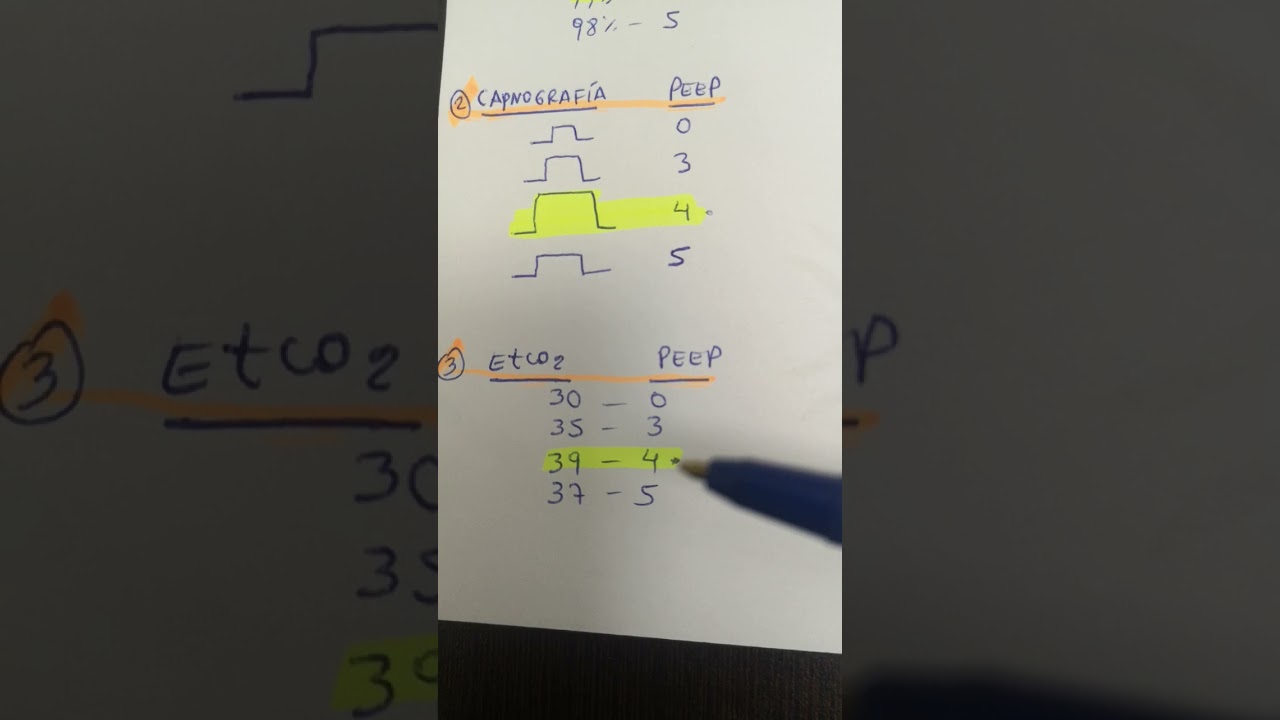 98% - 5
② CAPNOGRAFÍA PEEP
0
3
4
5
③ EtCO2 PEEP
30 - 0
35 - 3
39 - 4
37 - 5